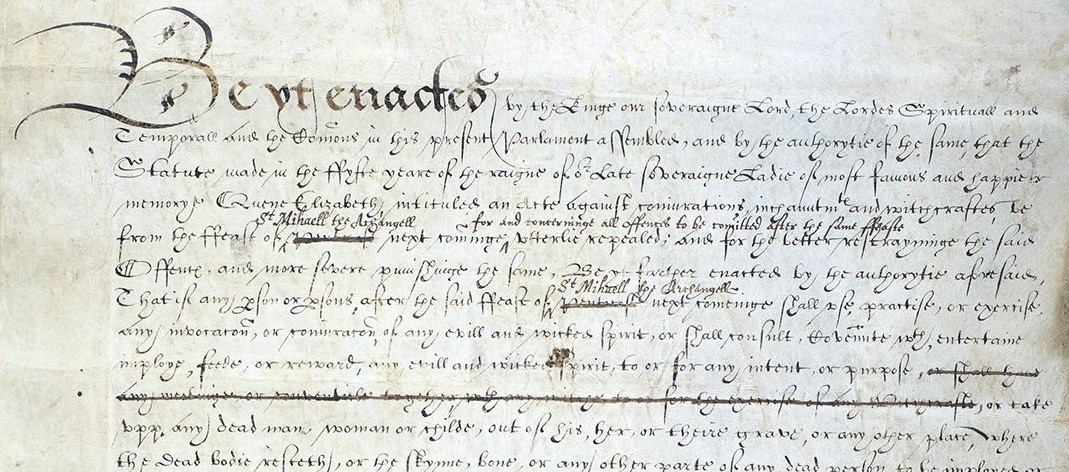 Be yt enacted by the Kinge our soveraigne Lord, the Lordes Spirituall and
Temporall and the Comons in this present Parlament assembled, and by the authorytie of the same, that the
Statute made in the ffyfte yeare of the raigne of or late soveraigne Ladie of most famous and happie
memorye Quene Elizabeth, intituled an Acte against coniurations, inchauntmts and witchcraftes, be
St Mihaell the Archangell for and concerninge all offences to be comitted after the same ffeaste
from the ffeast of next cominge, vtterlie repealed; and for the better restrayninge the said
Offenc, and more severe punishinge the same, Be yt further enacted by the authorytie aforesaid,
St Mihaell the Archangell
That if any pson or psons, after the said ffeast of next comeinge shall vse, practise, or exercise,
any invocacon, or coniuracon of any evill and wicked spirit, or shall consult, covennte wth, entertaine
imploye, feede, or reward, any evill and wicked spirit, to or for any intent, or purpose, or shall have
any meetinge or together wth any to or for the exercise of any Witchcrafte, or take
vpp any dead man, woman or childe, out of his, her, or theire grave, or any other place, where
the dead bodie resteth, or the skynne, bone, or any other parte of any dead person to be imployed or